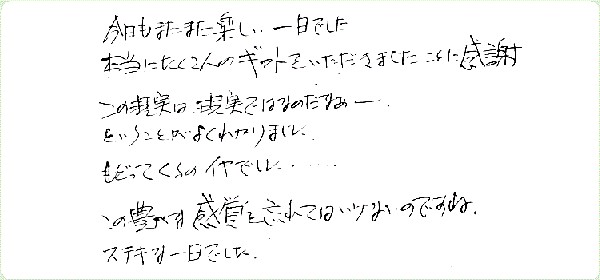 今日もまたまた楽しい一日でした
本当にたくさんのギフトをいただきました ことに感謝
この現実は 現実ではないのだなぁー・・
ということがよくわかりました。
もどってくるのイヤでした・・・・・
この豊かな感覚を忘れてはいけないのですね。
ステキな一日でした。